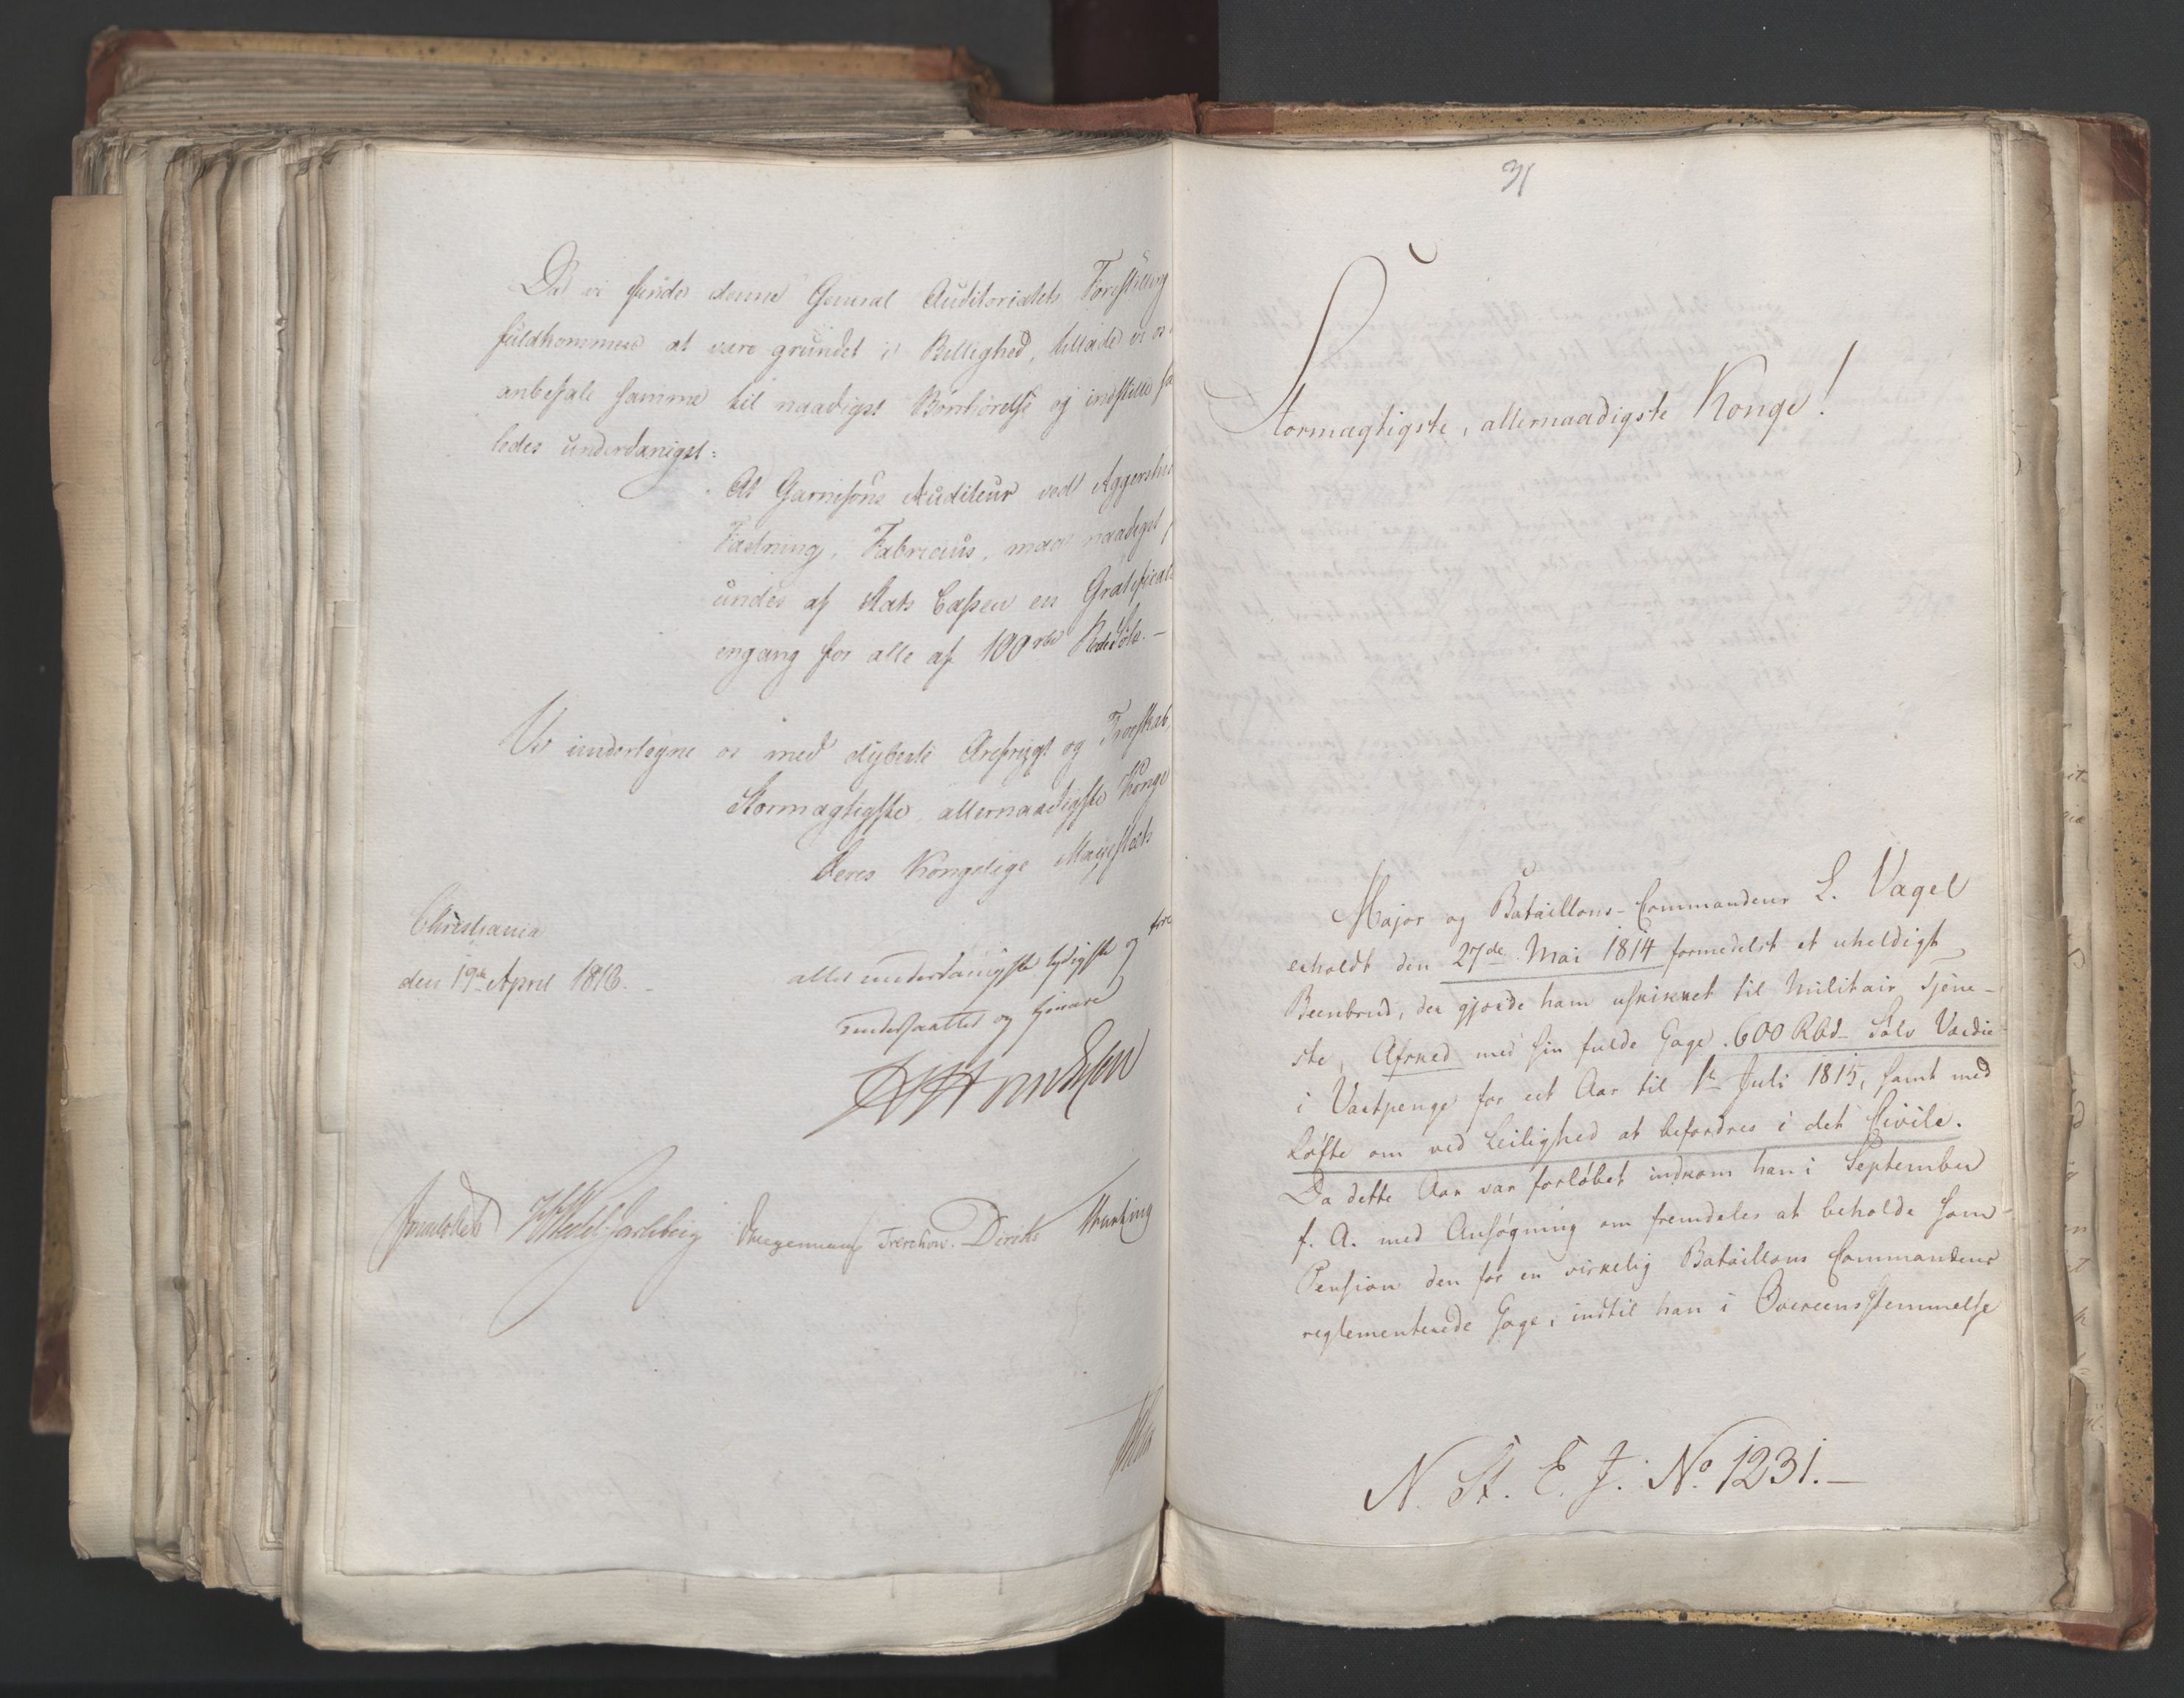 Da vi finde denne General Auditoriatets Forestilling
fuldkommen at være grundet i Billighed, tillade vi os
anbefale samme til naadigst Bönhörelse og indstille saa
ledes underdanigst:
At Garnisons Auditeur ved Aggershus
Fæstning, Fabricius, maa naadigst
undes af Stats Cassen en Gratificat
engang for alle af 100 rbd Rede Sölv. —
Vi undertegne os med dybeste Ærefrygt og Troeskab,
Stormægtigste, allernaadigste Konge
Deres Kongelige Majestæts
Christiania
den 19de April 1816. –
aller underdanigste lydigste og troe
undersaatter og tjenere
Sommerhjelm
HWedel-Jarlsberg Treschow. Diriks
31
Stormægtigste, allernaadigste Konge!
Major og Bataillons-Commandeur L. Vagel
erholdt den 27de Mai 1814 formedelst et uheldigt
Beenbrud, der gjorde ham uskikket til Militair Tjene-
ste, Afsked med sin fulde Gage 600 Rbd Sølv Værdie
i Vartpenge for eet Aar til 1ste Juli 1815, samt med
Løfte om ved Leilighed at befordres i det Civile.
Da dette Aar var forløbet indkom han i September
f. A. med Ansøgning om fremdeles at beholde som
Pension den for en virkelig Bataillons Commandeur
reglementerede Gage, indtil han i Overeensstemmelse
N. St. E. J. No. 1231. —